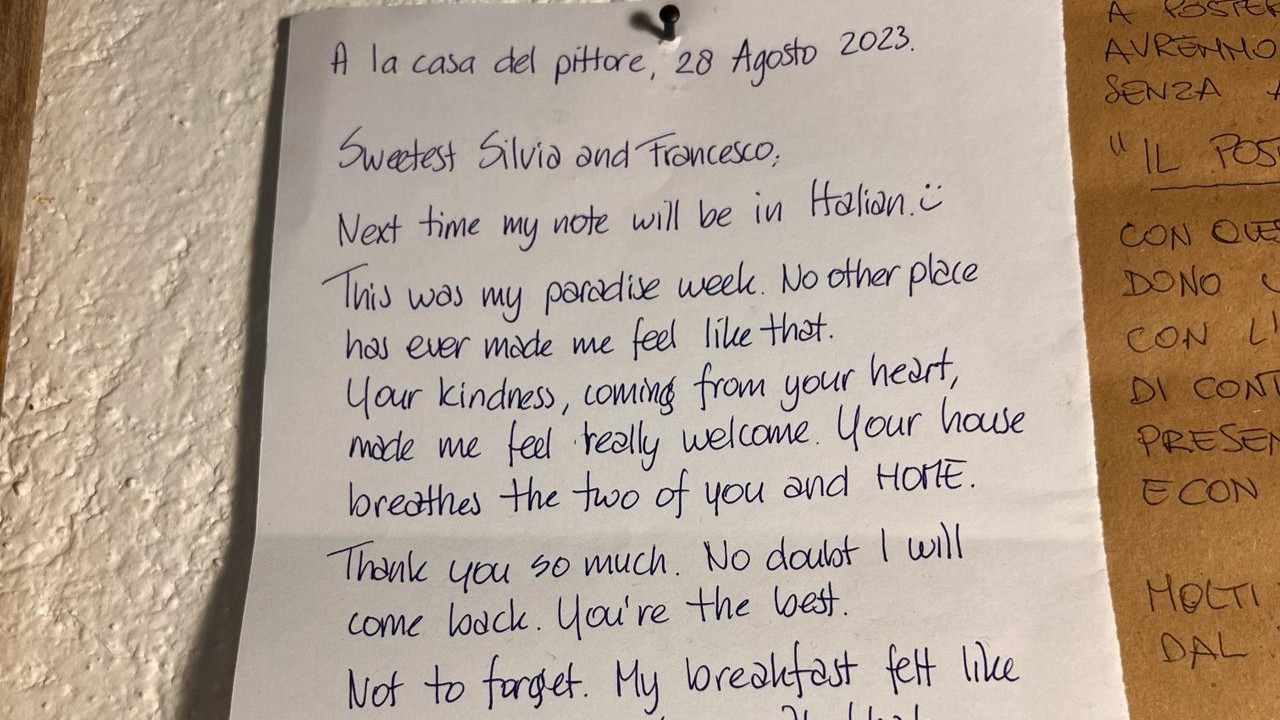 A la casa del pittore, 28 Agosto 2023.
Sweetest Silvia and Francesco,
Next time my note will be in Italian. :)
This was my paradise week. No other place
has ever made me feel like that.
Your kindness, coming from your heart,
made me feel really welcome. Your house
breathes the two of you and HOME.
Thank you so much. No doubt I will
come back. You're the best.
Not to forget. My breakfast felt like
A
AVREMMO
SENZA
"IL
CON
DONO
CON L'
DI
E CON
MOLTI
DAL